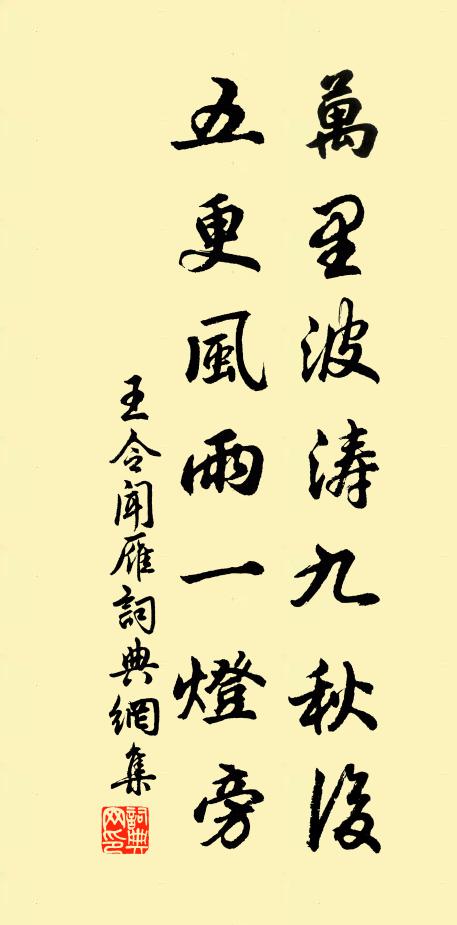 萬里波涛九秋後
五更風雨一燈旁
王令闻雁詞典網集
詞典网印